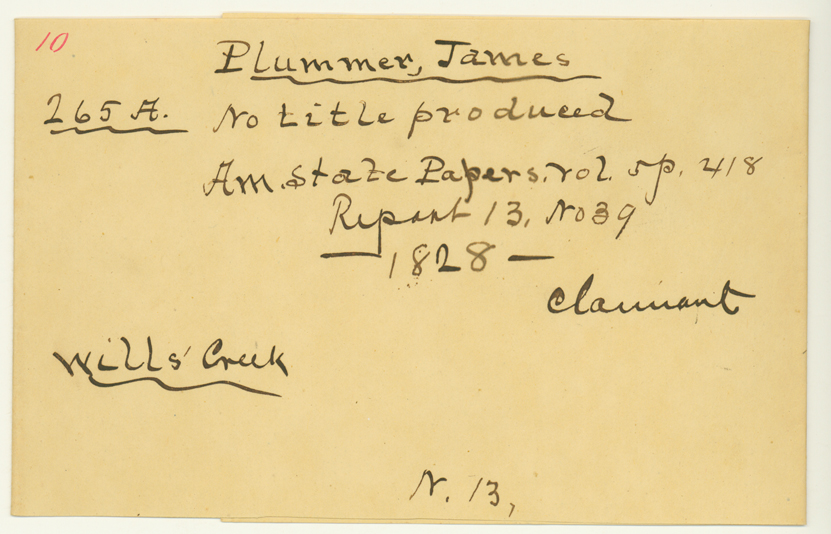 10
Plummer, James
265 A. No title produced
Am. State Papers. vol. 5 p. 418
Report 13, No 39
— 1828 —
Claimant
Wills' Creek
N. 13,